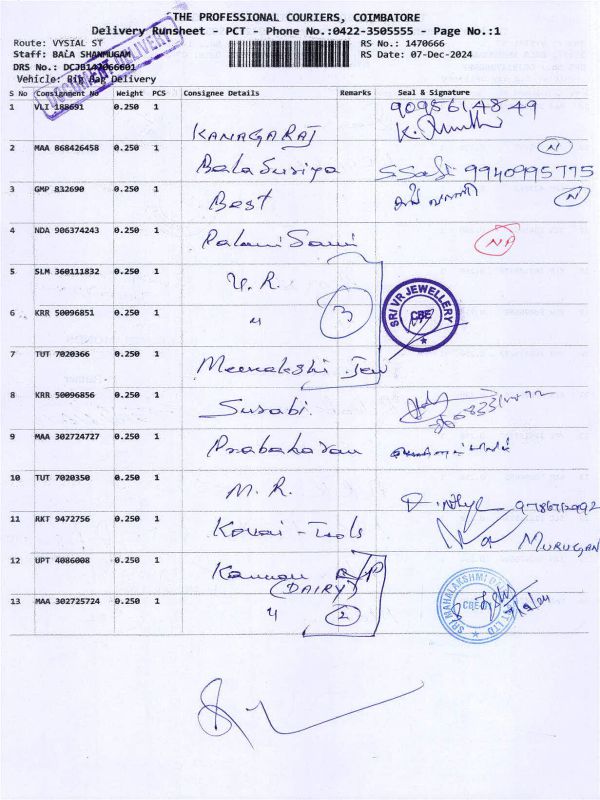 THE PROFESSIONAL COURIERS, COIMBATORE
Delivery Runsheet - PCT - Phone No.:0422-3505555 - Page No.:1
Route: VYSIAL ST
RS No.: 1470666
Staff: BALA SHANMUGAM
RS Date: 07-Dec-2024
DRS No.: DCJB147066601
Vehicle: Delivery
DOCUMENT DELIVERY
S No Consignment No Weight PCS Consignee Details Remarks Seal & Signature
1 VLI 188691 0.250 1 KANAGARAJ 9098614849
2 MAA 868426458 0.250 1 Bala Suriya 9940995775 N
3 GMP 832690 0.250 1 Best N
4 NDA 906374243 0.250 1 Palani Sami NA
5 SLM 360111832 0.250 1 V. R. 3
SRI VR JEWELLERY CBE
6 KRR 50096851 0.250 1 "
7 TUT 7020366 0.250 1 Meenakshi Jew
8 KRR 50096856 0.250 1 Surabi
9 MAA 302724727 0.250 1 Prabakaran
10 TUT 7020350 0.250 1 M. R.
11 RKT 9472756 0.250 1 Kovai - Tools MURUGAN
12 UPT 4086008 0.250 1 Kannan
(DAIRY)
13 MAA 302725724 0.250 1 " 2
SRI MAHALAKSHMI